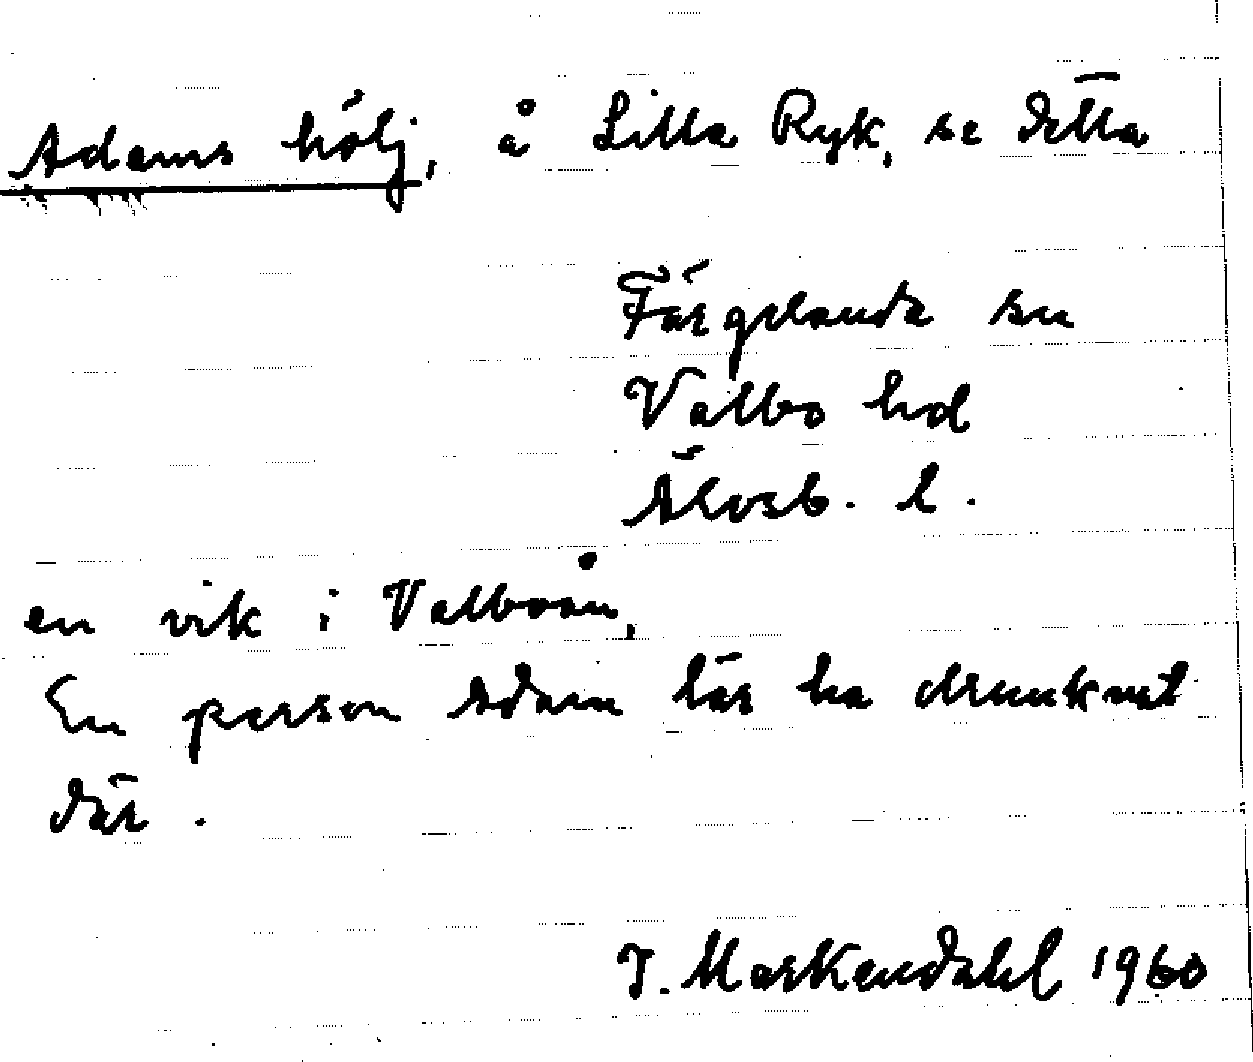 Adams hölj, å Lilla Ryk, se detta
Färgelanda sn
Valbo hd
Älvsb. l.
en vik i Valboån,
En person Adam lär ha drunknat
där.
J. Markendahl 1960